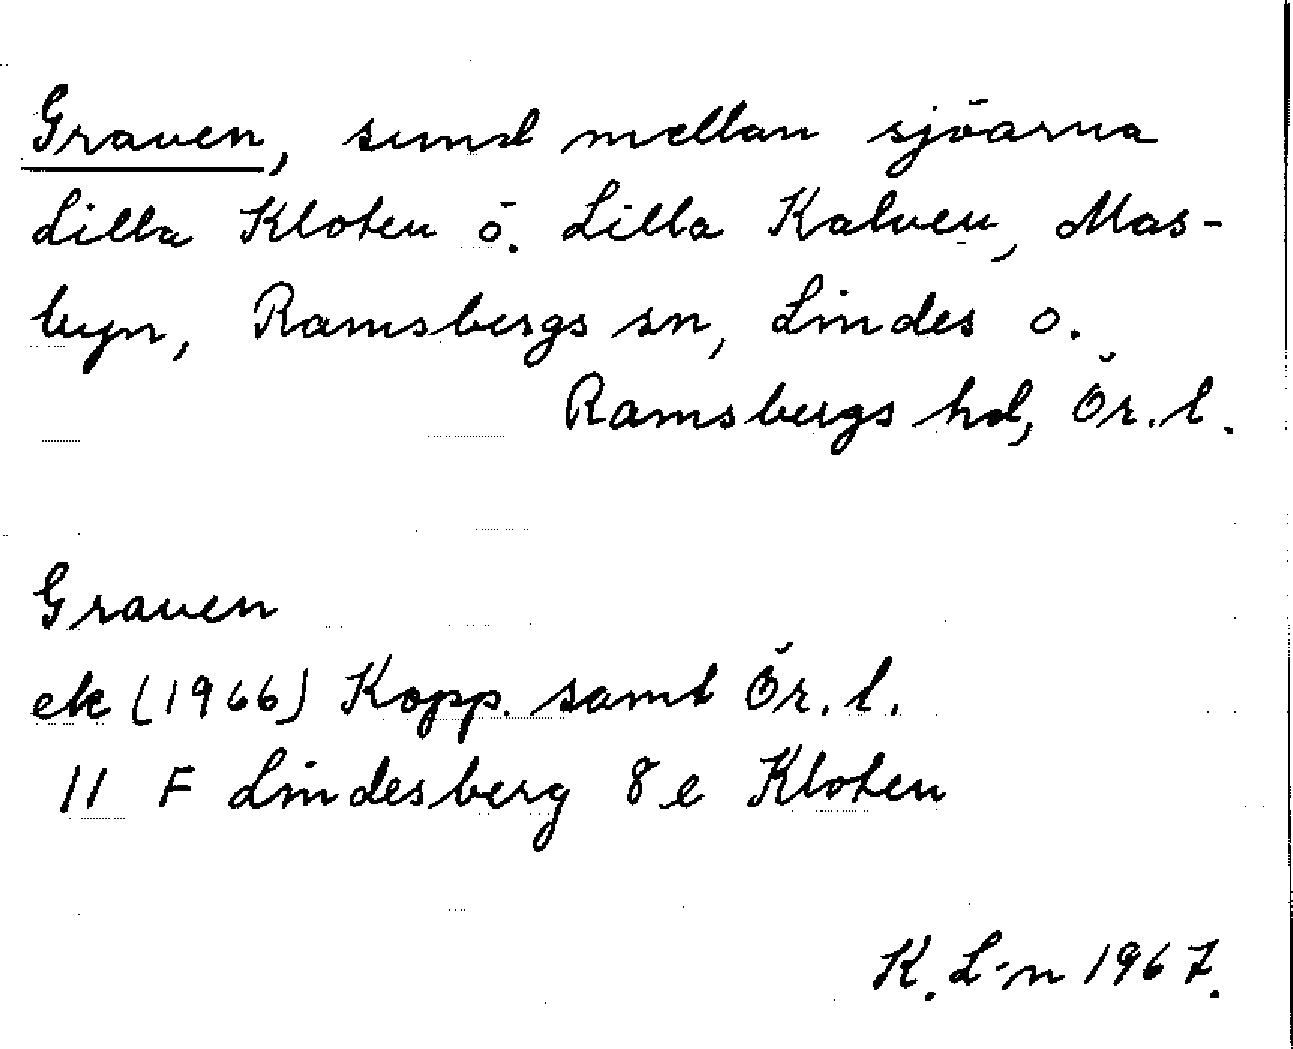 Graven, sund mellan sjöarna
Lilla Kloten o. Lilla Kalven, Mas-
byn, Ramsbergs sn, Lindes o.
Ramsbergs hd, Ör. l.
Graven
ek (1966) Kopp. samt Ör. l.
11 F Lindesberg 8 e Kloten
K. L-n 1967.